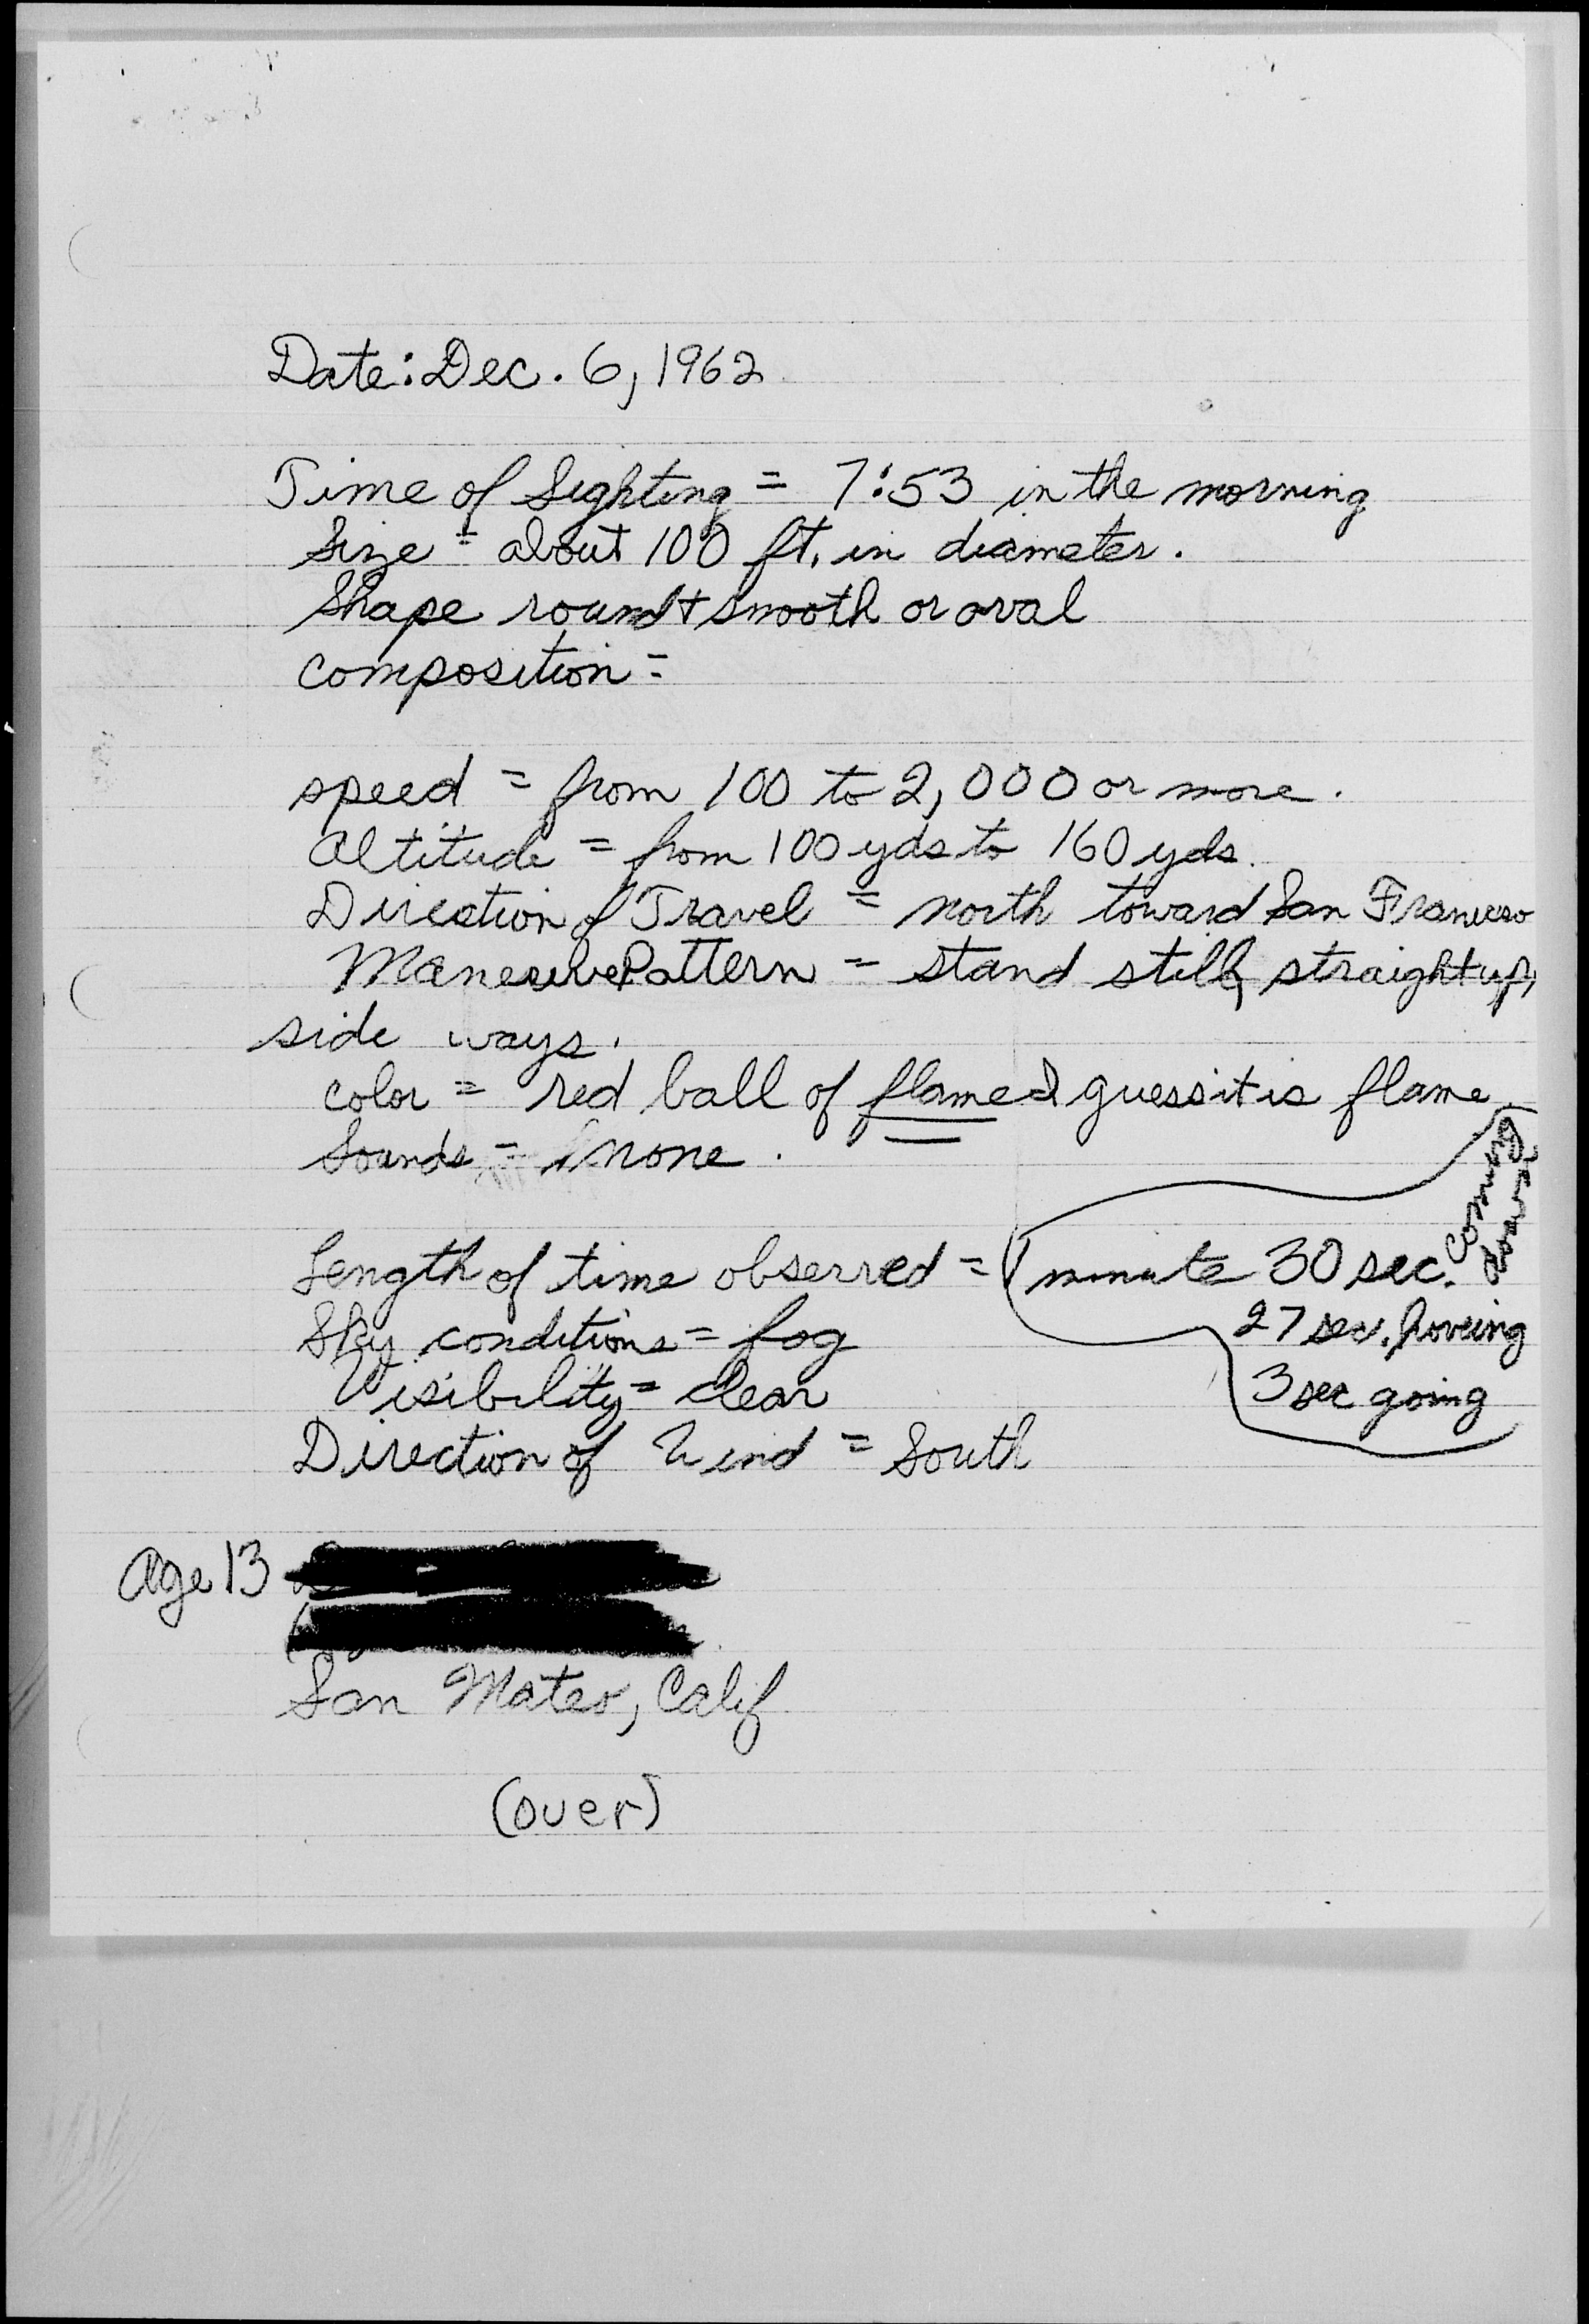 Date: Dec. 6, 1962
Time of Sighting = 7:53 in the morning
Size = about 100 ft. in diameter.
Shape round + smooth or oval
composition =
speed = from 100 to 2,000 or more.
Altitude = from 100 yds to 160 yds.
Direction of Travel = north toward San Francisco
Maneuver Pattern = stand still, straight up,
side ways.
color = red ball of flame I guess it is flame.
Sounds = none.
Length of time observed = 1 minute 30 sec. coming down
27 sec. hoveing
Sky conditions = fog
3 sec going
Visibility = clear
Direction of Wind = South
Age 13
San Mateo, Calif
(over)